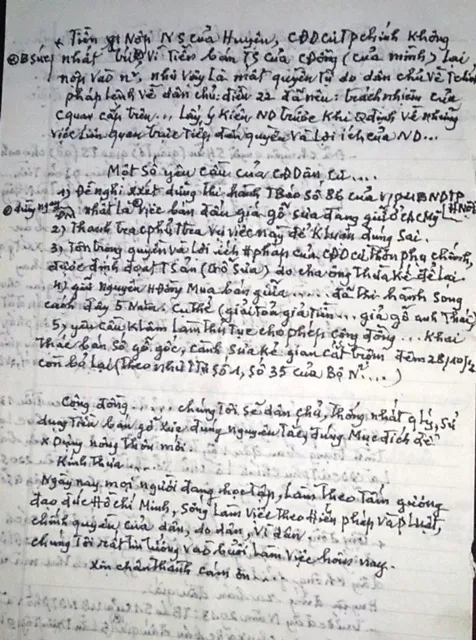 * Tiền gửi Nộp NS của Huyện, CĐDCư TP chính không
nhất trí Vì Tiền bán TS của CĐồng (của mình) Lại
nộp vào n², như vậy Là mất quyền tự do dân chủ về
pháp Lệnh về dân chủ: điều 22 đã nêu: trách nhiệm của
cquan cấp trên... Lấy ý Kiến ND trước Khi Qđịnh về những
việc Liên quan trực Tiếp đến quyền và Lợi ích của ND...
Một số yêu cầu của CĐDân Cư....
1) Đề nghị xét dừng thi hành TBáo Số 86 của VP UBNDTP
nhất Là việc bán đấu giá gỗ Sưa đang giữ ở CACMỹ
2) Thanh tra cphủ Tra vụ việc này để KLuận đúng Sai.
3) Tôn trọng quyền và Lợi ích Hpháp của CĐDCư thôn Phụ chính,
được định đoạt TSản (Gỗ Sưa) do cha ông Thừa Kế để Lại.
4) giữ Nguyên HĐồng Mua bán giữa ..... đã thi hành Song
cách đây 5 Năm. Cụ Thể (giải tỏa giả tiền ... giả gỗ anh Thái)
5) yêu cầu KLâm Làm Thủ Tục cho phép Cộng đồng ... Khai
Thác bán Số gỗ gốc, cành Sưa Kẻ gian cắt trộm đêm 28/10/
còn bỏ Lại (Theo như TTư Số 1, Số 35 của Bộ N²....)
Cộng đồng ..... chúng Tôi sẽ dân chủ, Thống nhất quản Lý, Sử
dụng Tiền bán gỗ Xưa đúng nguyên Tắc, đúng Mục đích để
x Dựng nông Thôn mới.
Kính Thưa....
Ngày nay, mọi người đang học Tập, Làm Theo Tấm gương
đạo đức Hồ Chí Minh, Sống Làm việc Theo Hiến pháp và PLuật,
chính quyền của dân, do dân, vì dân
chúng Tôi rất tin tưởng vào buổi Làm việc hôm nay.
Xin chân thành cảm ơn....